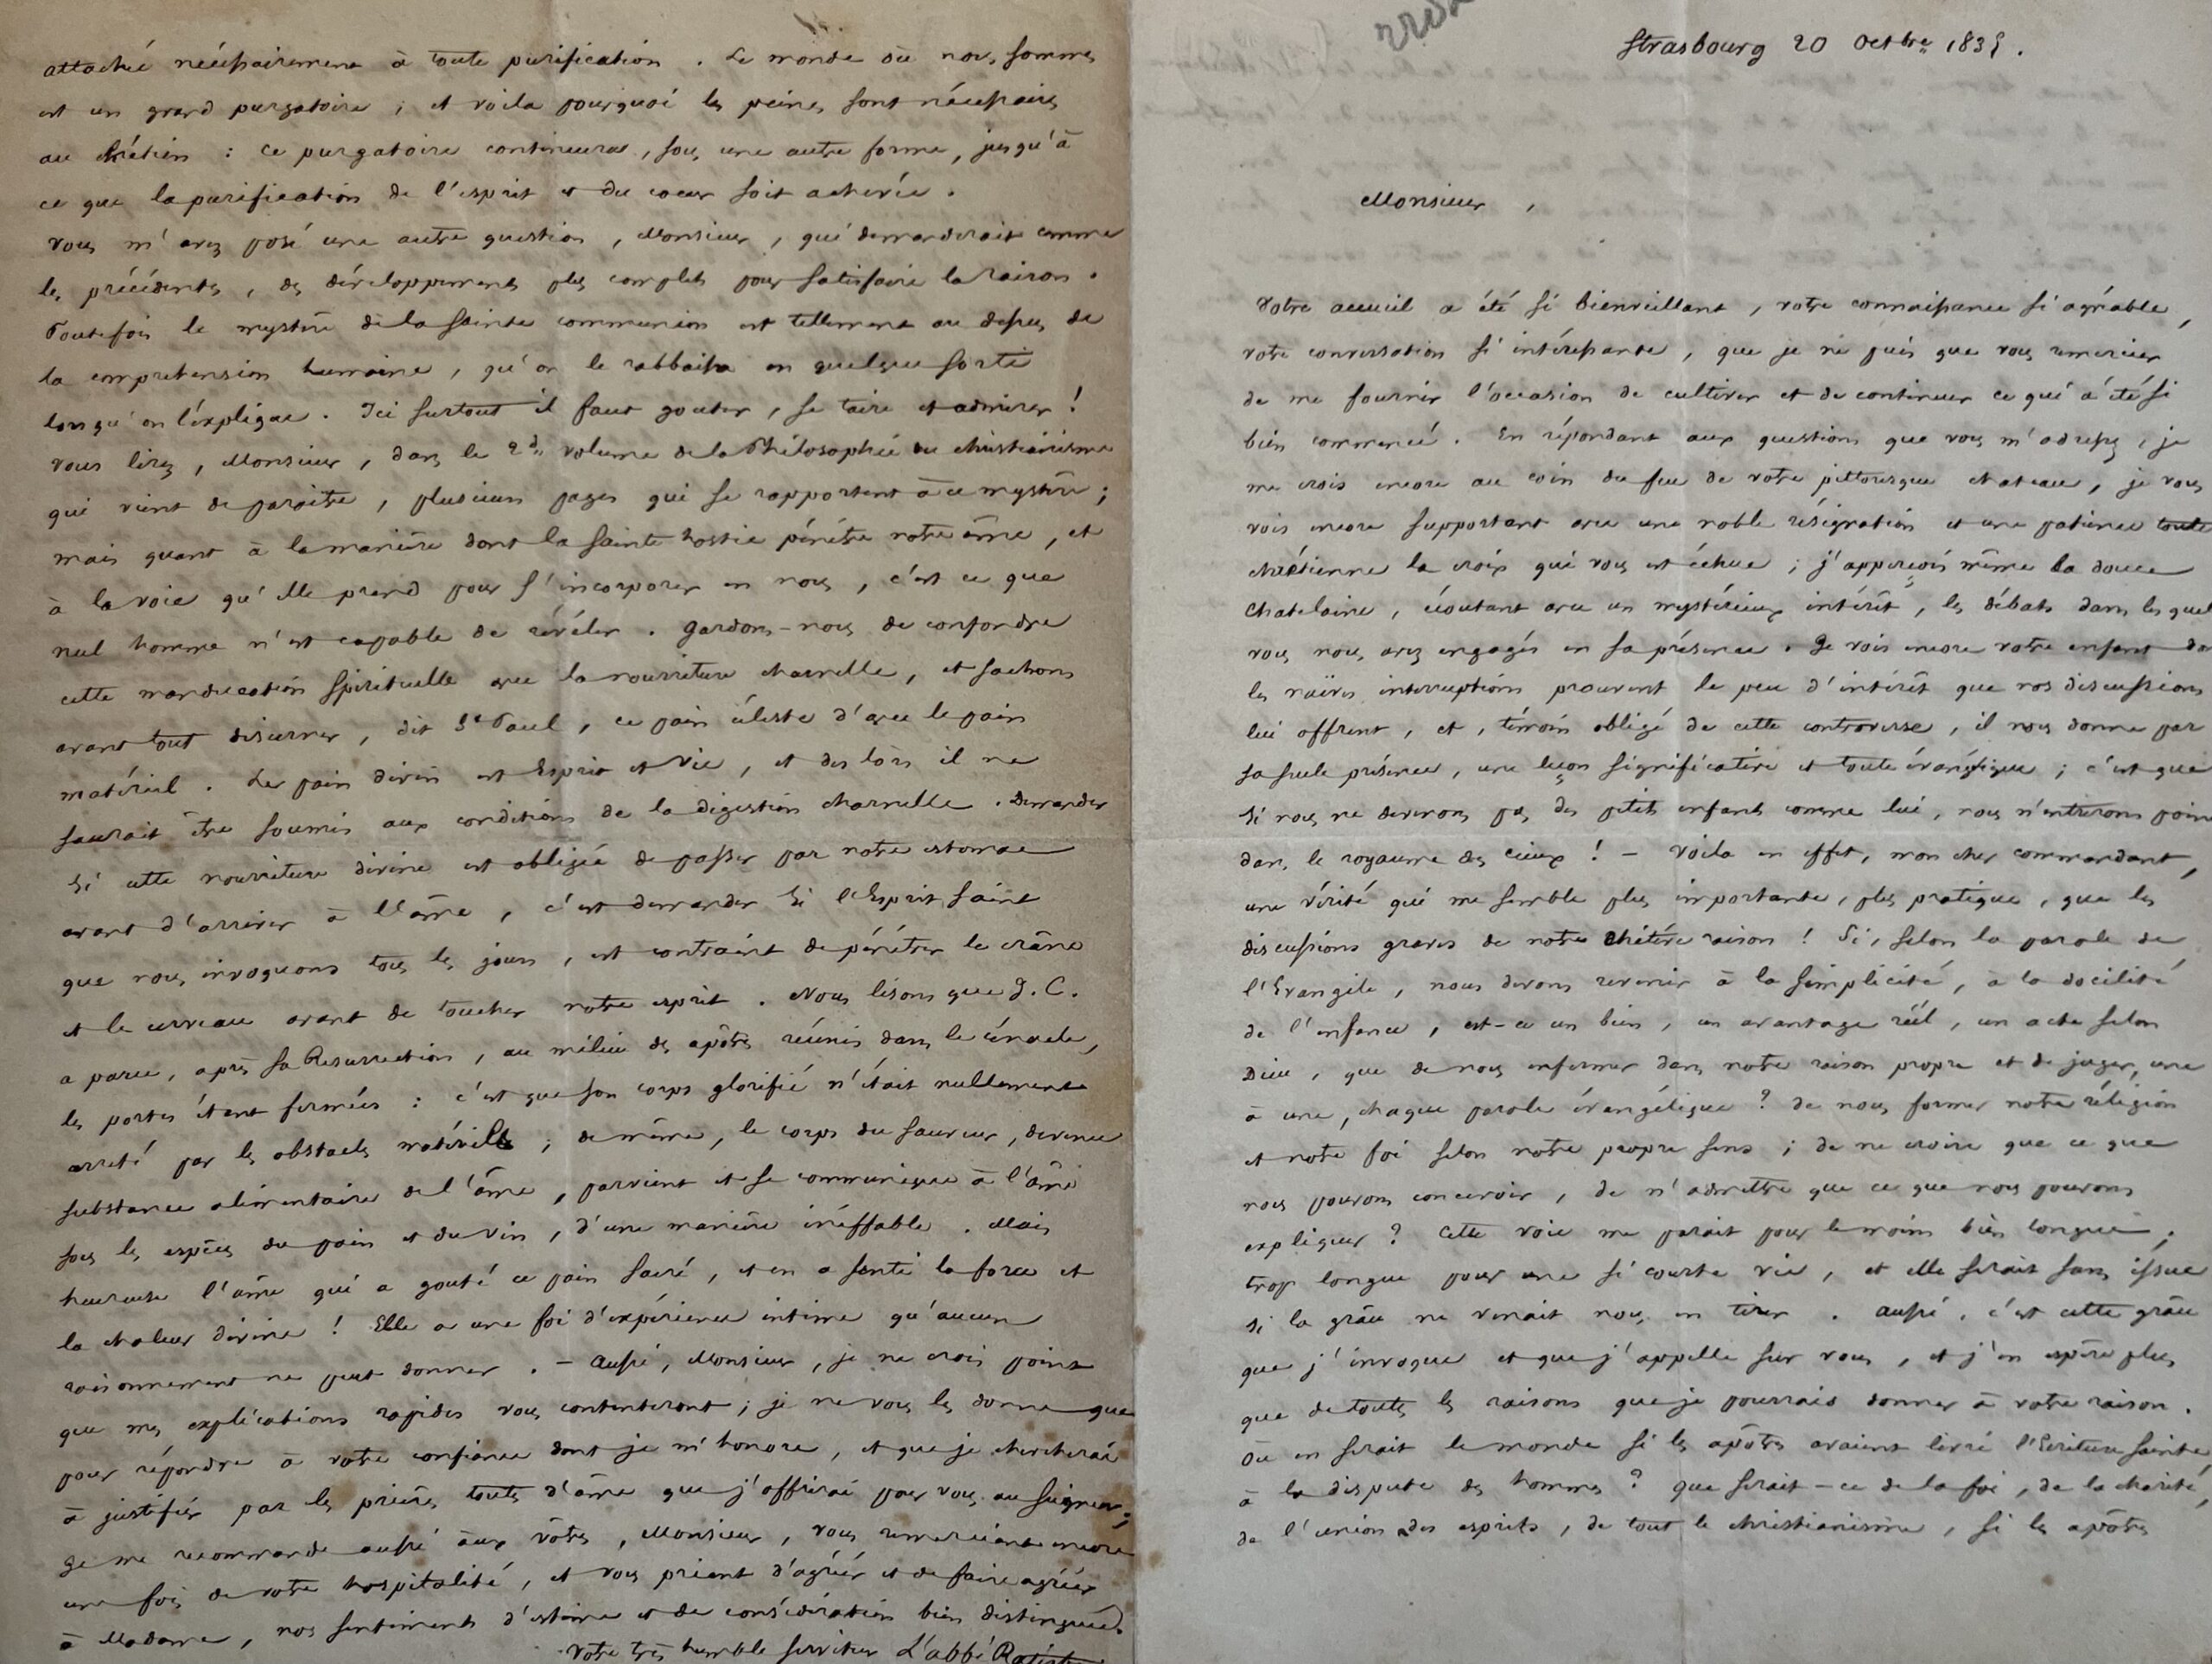 attachée nécessairement à toute purification. Le monde où nous sommes
est un grand purgatoire ; et voila pourquoi les peines sont nécessaires
au chrétien : ce purgatoire continuera, sous une autre forme, jusqu'à
ce que la purification de l'esprit et du coeur soit achevée.
vous m'avez posé une autre question, Monsieur, qui demanderait comme
les précédentes, des développements plus complets pour satisfaire la raison.
Toutefois le mystère de la sainte communion est tellement au dessus de
la comprehension humaine, qu'on le rabbaisse en quelque sorte
lorsqu'on l'éxplique. Ici surtout il faut gouter, se taire et admirer !
vous lirez, Monsieur, dans le 2d volume de la Philosophie du christianisme
qui vient de paroitre, plusieurs pages qui se rapportent à ce mystère ;
mais quant à la manière dont la sainte hostie pénètre notre âme, et
à la voie qu'elle prend pour s'incorporer en nous, c'est ce que
nul homme n'est capable de révéler. gardons-nous de confondre
cette manducation spirituelle avec la nourriture charnelle, et sachons
avant tout discerner, dit St Paul, ce pain céleste d'avec le pain
matériel. Le pain divin est Esprit et Vie, et dès lors il ne
saurait être soumis aux conditions de la digestion charnelle. Demander
si cette nourriture divine est obligée de passer par notre estomac
avant d'arriver à l'âme, c'est demander si l'Esprit saint
que nous invoquons tous les jours, est contraint de pénétrer le crâne
et le cerveau avant de toucher notre esprit. Nous lisons que J. C.
a paru, après sa Resurrection, au milieu des apôtres réunis dans le cénacle,
les portes étant fermées : c'est que son corps glorifié n'était nullement
arreté par les obstacles matériels ; de même, le corps du sauveur, devenu
substance alimentaire de l'âme, parvient et se communique à l'âme
sous les espèces du pain et du vin, d'une manière inéffable. Mais
heureuse l'âme qui a gouté ce pain sacré, et en a senti la force et
la chaleur divine ! Elle a une foi d'expérience intime qu'aucun
raisonnement ne peut donner. - aussi, Monsieur, je ne crois point
que mes explications rapides vous contenteront ; je ne vous les donne que
pour répondre à votre confiance dont je m'honore, et que je chercherai
à justifier par les prières toutes d'âme que j'offrirai pour vous au seigneur ;
je me recommande aussi aux vôtres, Monsieur, vous remerciant encore
une fois de votre hospitalité, et vous priant d'agréer et de faire agréer
à Madame, nos sentiments d'estime et de considération bien distinguée.
Votre très humble serviteur L'abbé
Strasbourg 20 Octbre
Monsieur,
Votre accueil a été si bienveillant, votre connaissance si agréable,
votre conversation si intéressante, que je ne puis que vous remercier
de me fournir l'occasion de cultiver et de continuer ce qui a été si
bien commencé. En répondant aux questions que vous m'adressez, je
me crois encore au coin du feu de votre pittoresque chateau, je vous
vois encore supportant avec une noble résignation et une patience toute
chrétienne la croix qui vous est échue ; j'apperçois même la douce
chatelaine, écoutant avec un mystérieux intérêt, les débats dans lesquels
vous nous avez engagés en sa présence. Je vois encore votre enfant
les naïves interruptions prouvent le peu d'intérêt que nos discussions
lui offrent, et, témoin obligé de cette controverse, il nous donne par
sa seule présence, une leçon significative et toute évangélique ; c'est que
si nous ne devenons pas des petits enfants comme lui, nous n'entrerons point
dans le royaume des cieux ! - Voila en effet, mon cher commandant,
une vérité qui me semble plus importante, plus pratique, que les
discussions graves de notre chétive raison ! Si, selon la parole de
l'Evangile, nous devons revenir à la simplicité, à la docilité
de l'enfance, est-ce un bien, un avantage réel, un acte selon
Dieu, que de nous enfermer dans notre raison propre et de juger, une
à une, chaque parole évangélique ? de nous former notre réligion
et notre foi selon notre propre sens ; de ne croire que ce que
nous pouvons concevoir, de n'admettre que ce que nous pouvons
expliquer ? Cette voie me parait pour le moins bien longue ;
trop longue pour une si courte vie, et elle serait sans issue
si la grâce ne venait nous en tirer. aussi, c'est cette grâce
que j'invoque et que j'appelle sur vous, et j'en espère plus
que de toutes les raisons que je pourrais donner à votre raison.
Où en serait le monde si les apôtres avaient livré l'Ecriture sainte
à la dispute des hommes ? que serait-ce de la foi, de la charité,
de l'union des esprits, de tout le christianisme, si les apôtres